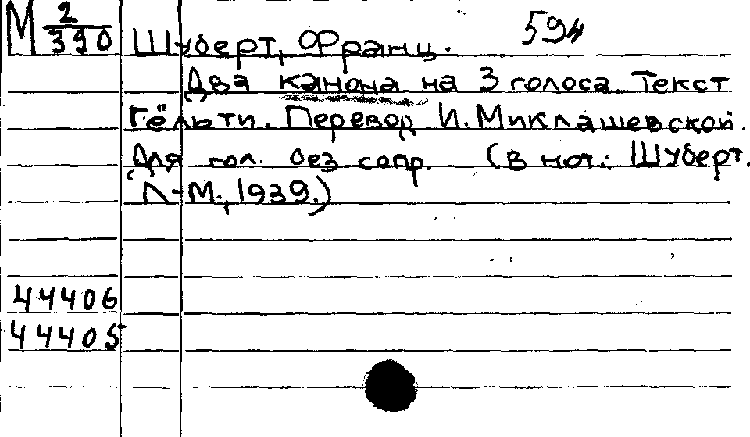 М 2/390 Шуберт, Франц. 594
Два канона на 3 голоса. Текст
Гёльти. Перевод И. Миклашевской.
Для гол. без сопр. (В нот.: Шуберт.
Л-М., 1939.)
44406
44405